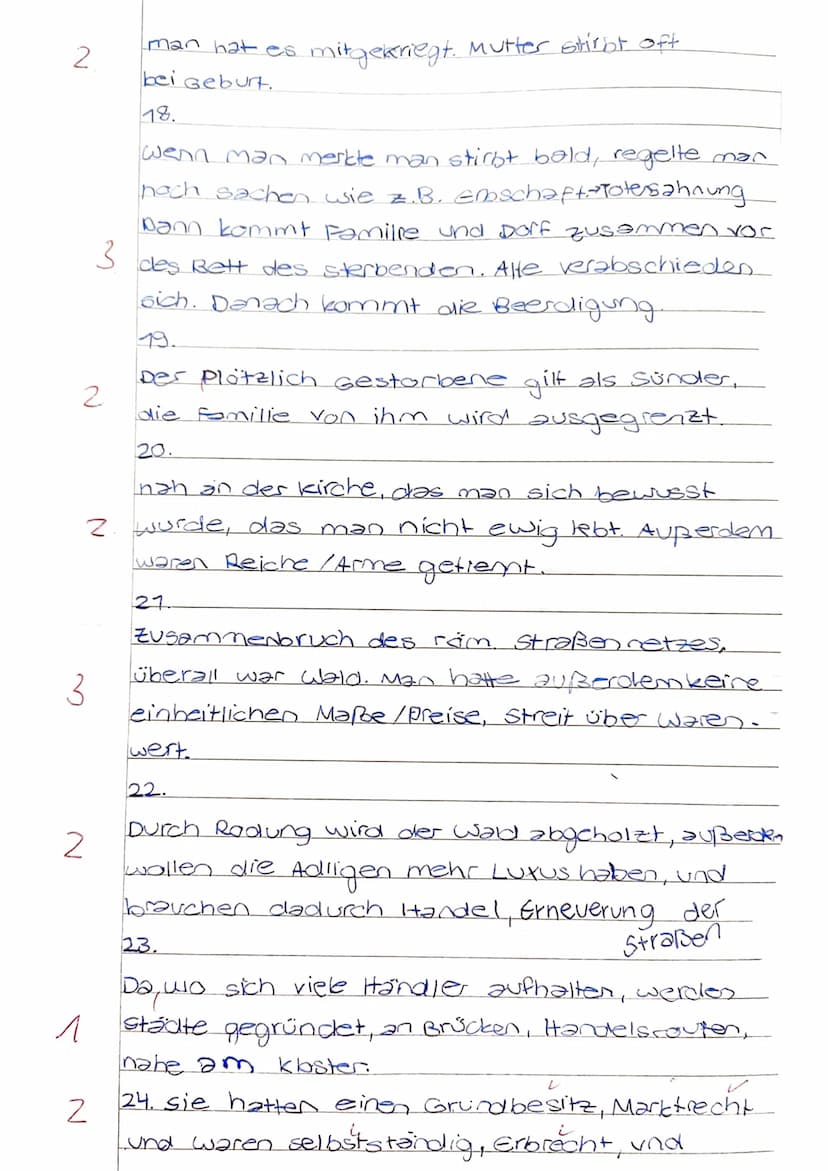 2 man hat es mitgekriegt. Mutter stirbt oft
bei Geburt.
18.
Wenn man merkte man stirbt bald, regelte man
noch sachen wie z.B. Erbschaft→Totersahnung
Dann kommt Familie und Dorf zusammen vor
3 des Bett des sterbenden. Alle verabschieden
sich. Danach kommt die Beerdigung.
19.
2 Der Plötzlich Gestorbene gilt als Sünder,
die Familie von ihm wird ausgegrenzt.
20.
nah an der Kirche, das man sich bewusst
2 wurde, das man nicht ewig lebt. Außerdem
waren Reiche/Arme getrennt.
21.
Zusammenbruch des röm. Straßennetzes,
3 überall war Wald. Man hatte außerdem keine
einheitlichen Maße/Preise, Streit über Waren-
wert.
22.
2 Durch Rodung wird der Wald abgeholzt, außerdem
wollen die Adligen mehr Luxus haben, und
brauchen dadurch Handel, Erneuerung der
Straßen
23.
Da, wo sich viele Händler aufhalten, werden
1 städte gegründet, an Brücken, Handelsrouten,
nahe am Kloster.
2 24. Sie hatten einen Grundbesitz, Marktrecht
und waren selbstständig, Erbrecht, und